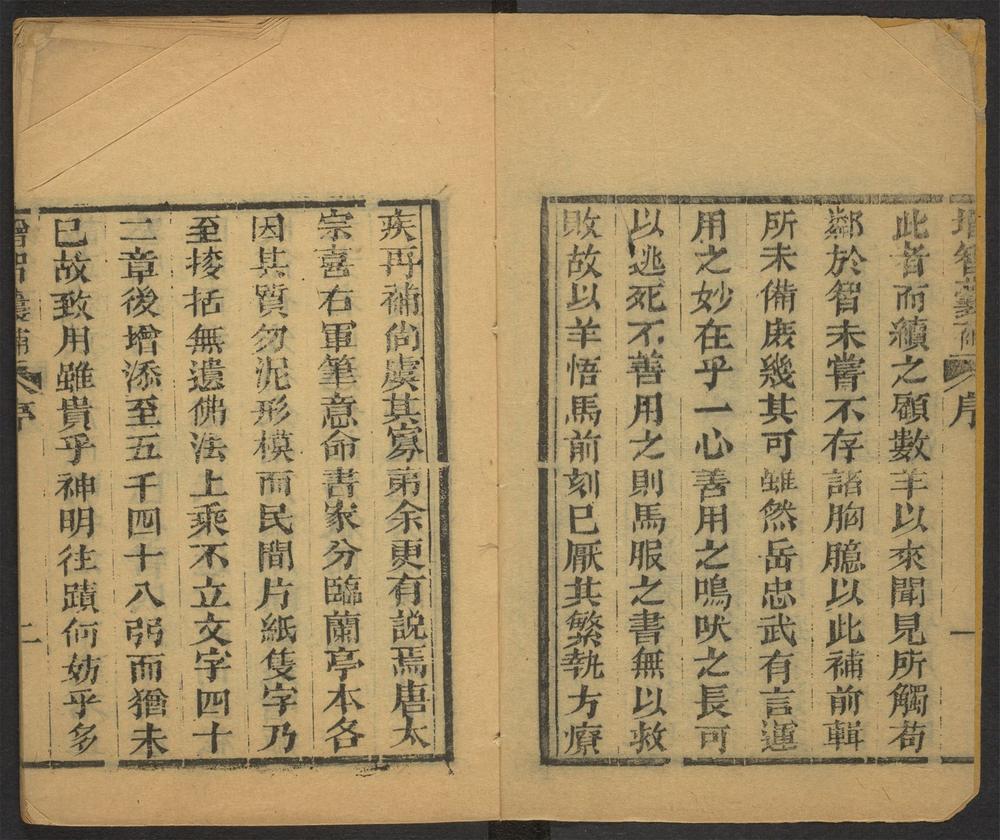 增智囊補 序 一
此者而續之顧數羊以來聞見所觸苟
鄰於智未嘗不存諸胸臆以此補前輯
所未備庶幾其可雖然岳忠武有言運
用之妙在乎一心善用之鳴吠之長可
以逃死不善用之則馬服之書無以救
敗故以羊悟馬前刻已厭其繁執方療
疾再補尚虞其寡弟余更有說焉唐太
宗喜右軍筆意命書家分臨蘭亭本各
因其質勿泥形模而民間片紙隻字乃
至搜括無遺佛法上乘不立文字四十
二章後增添至五千四十八弱而猶未
已故致用雖貴乎神明往蹟何妨乎多
增智囊補 序 二